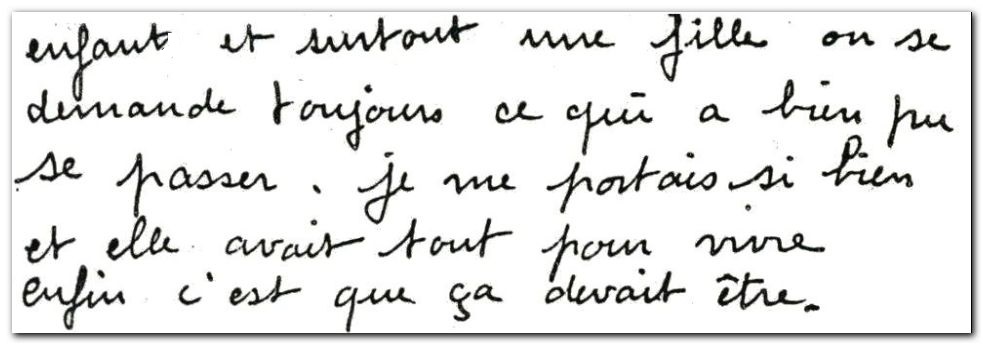 enfant et surtout une fille on se
demande toujours ce qui a bien pu
se passer. je me portais si bien
et elle avait tout pour vivre
enfin c'est que ça devait être.